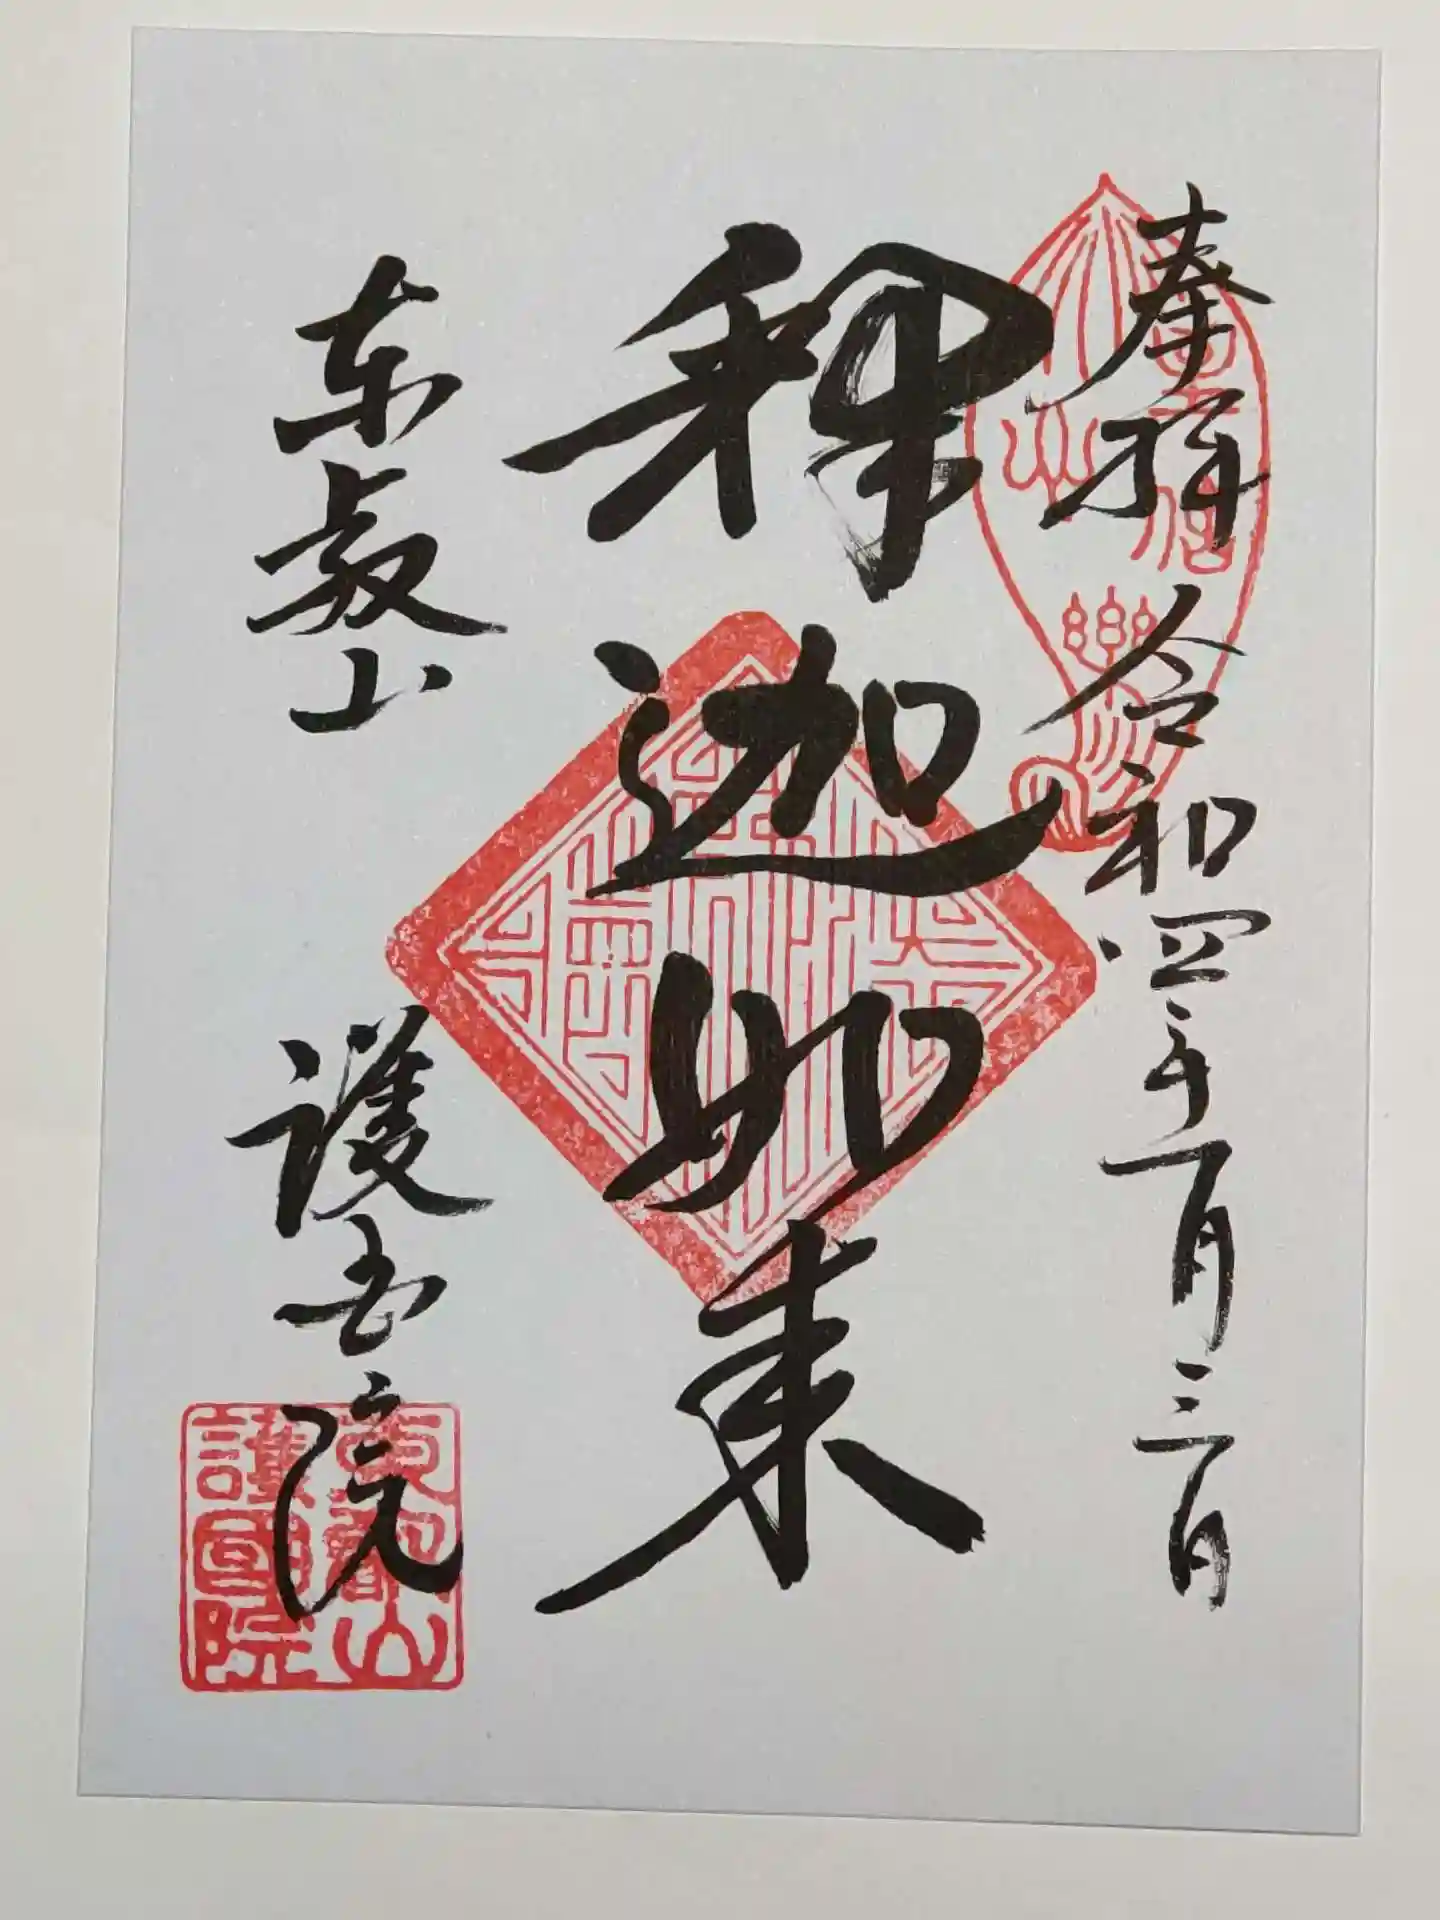 奉拝 令和四年一月三日
釈迦如来
東叡山 護国院
東叡山
護國院